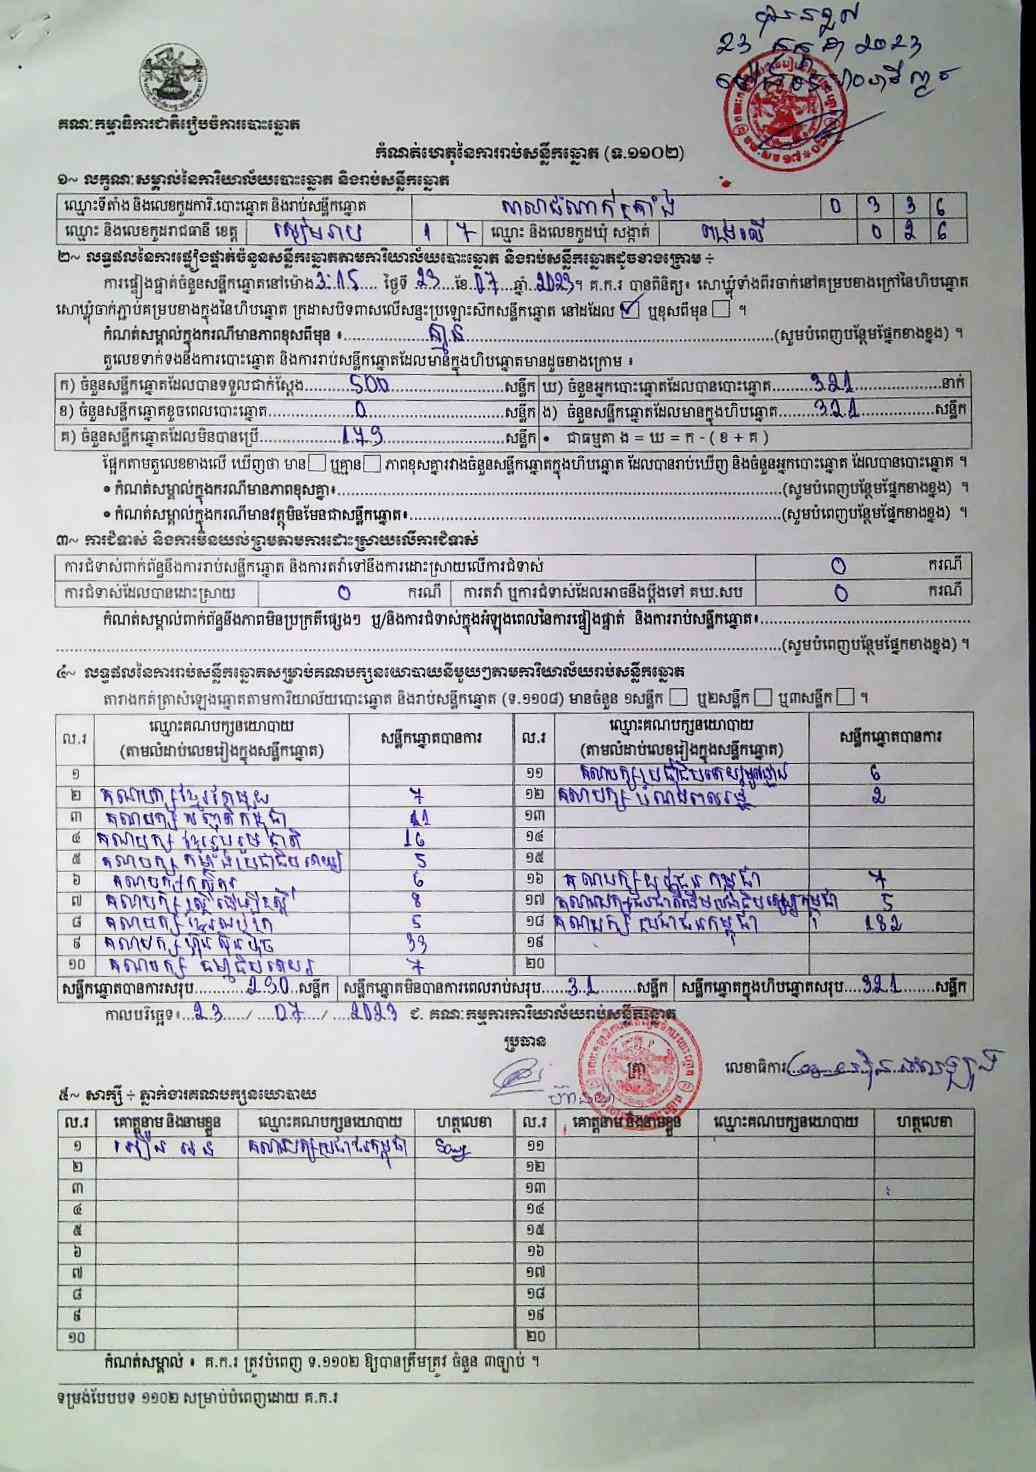 ២៣ កក្កដា ២០២៣
គណៈកម្មាធិការជាតិរៀបចំការបោះឆ្នោត
កំណត់ហេតុនៃការរាប់សន្លឹកឆ្នោត (ទ.១១០២)
១~ លក្ខណៈសម្គាល់នៃការិយាល័យបោះឆ្នោត និងរាប់សន្លឹកឆ្នោត
ឈ្មោះទីតាំង និងលេខកូដការិ.បោះឆ្នោត និងរាប់សន្លឹកឆ្នោត សាលាដំណាក់ត្រាំង 0 3 3 6
ឈ្មោះ និងលេខកូដរាជធានី ខេត្ត សៀមរាប 1 7 ឈ្មោះ និងលេខកូដឃុំ សង្កាត់ 0 2 6
២~ លទ្ធផលនៃការផ្ទៀងផ្ទាត់ចំនួនសន្លឹកឆ្នោតតាមការិយាល័យបោះឆ្នោត និងរាប់សន្លឹកឆ្នោតដូចខាងក្រោម ÷
ការផ្ទៀងផ្ទាត់ចំនួនសន្លឹកឆ្នោតនៅម៉ោង 3:15 ថ្ងៃទី 23 ខែ 07 ឆ្នាំ 2023។ គ.ក.រ បានពិនិត្យ៖ សោឃ្លុំទាំងពីរចាក់នៅគម្របខាងក្រៅនៃហិបឆ្នោត
សោឃ្លុំចាក់ភ្ជាប់គម្របខាងក្នុងនៃហិបឆ្នោត ក្រដាសបិទពាសលើសន្ទះប្រឡោះសិកសន្លឹកឆ្នោត នៅដដែល ☑ ឬខុសពីមុន ☐ ។
កំណត់សម្គាល់ក្នុងករណីមានភាពខុសពីមុន ៖ គ្មាន (សូមបំពេញបន្ថែមផ្នែកខាងខ្នង) ។
តួលេខទាក់ទងនឹងការបោះឆ្នោត និងការរាប់សន្លឹកឆ្នោតដែលមានក្នុងហិបឆ្នោតមានដូចខាងក្រោម ៖
ក) ចំនួនសន្លឹកឆ្នោតដែលបានទទួលជាក់ស្តែង 500 សន្លឹក ឃ) ចំនួនអ្នកបោះឆ្នោតដែលបានបោះឆ្នោត 321 នាក់
ខ) ចំនួនសន្លឹកឆ្នោតខូចពេលបោះឆ្នោត 0 សន្លឹក ង) ចំនួនសន្លឹកឆ្នោតដែលមានក្នុងហិបឆ្នោត 321 សន្លឹក
គ) ចំនួនសន្លឹកឆ្នោតដែលមិនបានប្រើ 179 សន្លឹក • ជាធម្មតា ង = ឃ = ក - ( ខ + គ )
ផ្អែកតាមតួលេខខាងលើ ឃើញថា មាន ☐ ឬគ្មាន ☐ ភាពខុសគ្នារវាងចំនួនសន្លឹកឆ្នោតក្នុងហិបឆ្នោត ដែលបានរាប់ឃើញ និងចំនួនអ្នកបោះឆ្នោត ដែលបានបោះឆ្នោត ។
• កំណត់សម្គាល់ក្នុងករណីមានភាពខុសគ្នា៖ (សូមបំពេញបន្ថែមផ្នែកខាងខ្នង) ។
• កំណត់សម្គាល់ក្នុងករណីមានវត្ថុមិនមែនជាសន្លឹកឆ្នោត៖ (សូមបំពេញបន្ថែមផ្នែកខាងខ្នង) ។
៣~ ការជំទាស់ និងការមិនយល់ព្រមតាមការដោះស្រាយលើការជំទាស់
ការជំទាស់ពាក់ព័ន្ធនឹងការរាប់សន្លឹកឆ្នោត និងការតវ៉ាទៅនឹងការដោះស្រាយលើការជំទាស់ 0 ករណី
ការជំទាស់ដែលបានដោះស្រាយ 0 ករណី ការតវ៉ា ឬការជំទាស់ដែលអាចនឹងប្តឹងទៅ គឃ.សប 0 ករណី
កំណត់សម្គាល់ពាក់ព័ន្ធនឹងភាពមិនប្រក្រតីផ្សេងៗ ឬ/និងការជំទាស់ក្នុងអំឡុងពេលនៃការផ្ទៀងផ្ទាត់ និងការរាប់សន្លឹកឆ្នោត៖
(សូមបំពេញបន្ថែមផ្នែកខាងខ្នង) ។
៤~ លទ្ធផលនៃការរាប់សន្លឹកឆ្នោតសម្រាប់គណបក្សនយោបាយនីមួយៗតាមការិយាល័យរាប់សន្លឹកឆ្នោត
តារាងកត់ត្រាសំឡេងឆ្នោតតាមការិយាល័យបោះឆ្នោត និងរាប់សន្លឹកឆ្នោត (ទ.១១០៨) មានចំនួន ១សន្លឹក ☐ ឬ២សន្លឹក ☐ ឬ៣សន្លឹក ☐ ។
ល.រ ឈ្មោះគណបក្សនយោបាយ (តាមលំដាប់លេខរៀងក្នុងសន្លឹកឆ្នោត) សន្លឹកឆ្នោតបានការ ល.រ ឈ្មោះគណបក្សនយោបាយ (តាមលំដាប់លេខរៀងក្នុងសន្លឹកឆ្នោត) សន្លឹកឆ្នោតបានការ
១ ១១ គណបក្សប្រជាធិបតេយ្យមូលដ្ឋាន 6
២ គណបក្សខ្មែរតែមួយ 7 ១២ គណបក្ស 2
៣ គណបក្ស កម្ពុជា 11 ១៣
៤ គណបក្ស ខ្មែររួបរួមជាតិ 16 ១៤
៥ គណបក្ស កម្លាំងប្រជាធិបតេយ្យ 5 ១៥
៦ គណបក្សកសិករ 6 ១៦ គណបក្សយុវជនកម្ពុជា 7
៧ គណបក្សស្ត្រីដើម្បីស្ត្រី 8 ១៧ គណបក្សជនជាតិដើមប្រជាធិបតេយ្យកម្ពុជា 5
៨ គណបក្ស 5 ១៨ គណបក្ស ប្រជាជនកម្ពុជា 182
៩ គណបក្សហ៊្វុនស៊ិនប៉ិច 33 ១៩
១០ គណបក្ស ធម្មាធិបតេយ្យ 7 ២០
សន្លឹកឆ្នោតបានការសរុប 290 សន្លឹក សន្លឹកឆ្នោតមិនបានការពេលរាប់សរុប 31 សន្លឹក សន្លឹកឆ្នោតក្នុងហិបឆ្នោតសរុប 321 សន្លឹក
កាលបរិច្ឆេទ៖ 23 / 07 / 2023 ជ. គណៈកម្មការការិយាល័យរាប់សន្លឹកឆ្នោត
ប្រធាន ត្រា លេខាធិការ
៥~ សាក្សី ÷ ភ្នាក់ងារគណបក្សនយោបាយ
ល.រ គោត្តនាម និងនាមខ្លួន ឈ្មោះគណបក្សនយោបាយ ហត្ថលេខា ល.រ គោត្តនាម និងនាមខ្លួន ឈ្មោះគណបក្សនយោបាយ ហត្ថលេខា
១ គណបក្សប្រជាជនកម្ពុជា ១១
២ ១២
៣ ១៣
៤ ១៤
៥ ១៥
៦ ១៦
៧ ១៧
៨ ១៨
៩ ១៩
១០ ២០
កំណត់សម្គាល់ ៖ គ.ក.រ ត្រូវបំពេញ ទ.១១០២ ឱ្យបានត្រឹមត្រូវ ចំនួន ៣ច្បាប់ ។
ទម្រង់បែបបទ ១១០២ សម្រាប់បំពេញដោយ គ.ក.រ